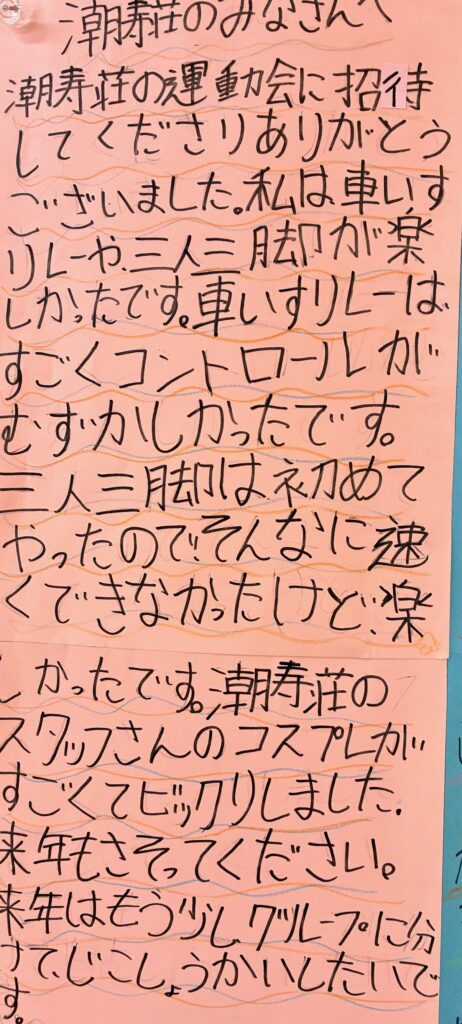 潮寿荘のみなさんへ
潮寿荘の運動会に招待
してくださりありがとう
ございました。私は、車いす
リレーや、三人三脚が楽
しかったです。車いすリレーは
すごくコントロールが
むずかしかったです。
三人三脚は、初めて
やったので、そんなに速
くできなかったけど、楽
しかったです。潮寿荘の
スタッフさんのコスプレが
すごくてビックリしました。
来年もさそってください。
来年はもう少し、グループに分
けて、じこしょうかいしたいで
す。